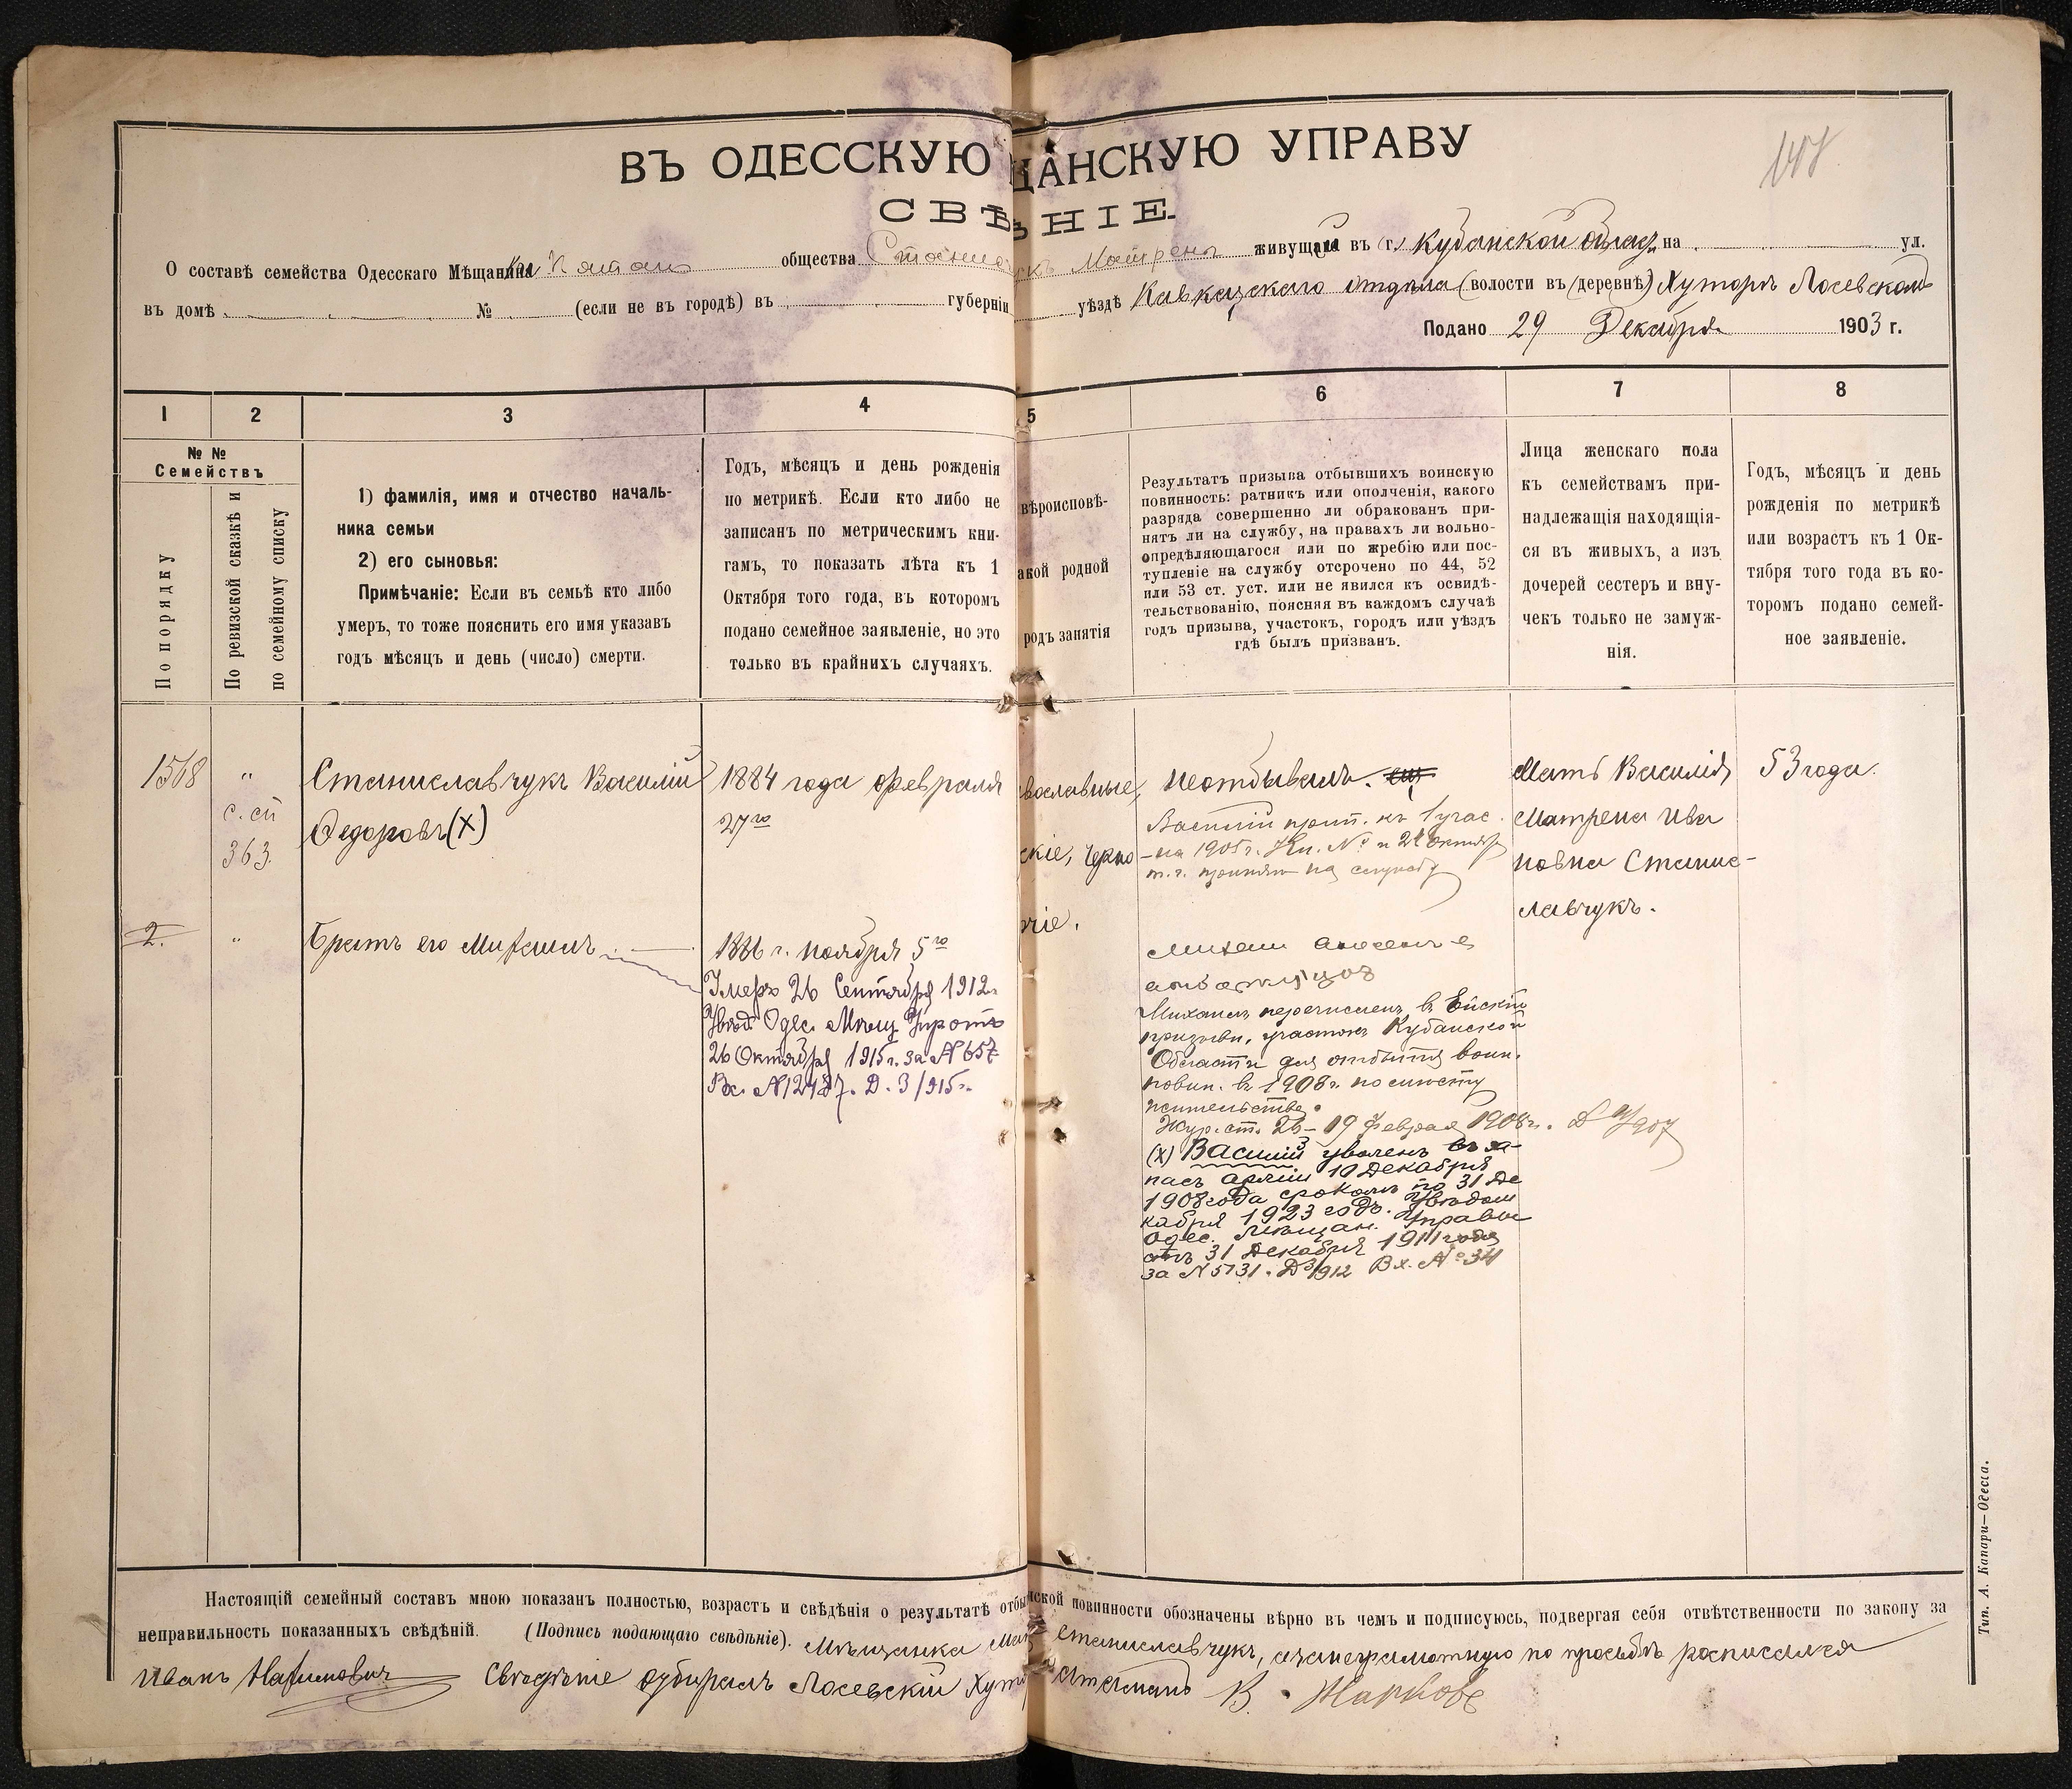 ВЪ ОДЕССКУЮ ЩАНСКУЮ УПРАВУ
СВѢ НІЕ
О составѣ семейства Одесскаго Мѣщанина общества Матрены живущаго въ г. Кубанской Област на ул.
въ домѣ № (если не въ городѣ) въ губерніи уѣздѣ Кавказскаго отдѣла (волости въ деревнѣ) Хуторѣ Лосевскомъ
Подано 29 Декабря 1903 г.
1 2 3 4 5 6 7 8
№ №
Семействъ
По порядку
По ревизской сказкѣ и
по семейному списку
1) фамилія, имя и отчество началь-
ника семьи
2) его сыновья:
Примѣчаніе: Если въ семьѣ кто либо
умеръ, то тоже пояснить его имя указавъ
годъ мѣсяцъ и день (число) смерти.
Годъ, мѣсяцъ и день рожденія
по метрикѣ. Если кто либо не
записанъ по метрическимъ кни-
гамъ, то показать лѣта къ 1
Октября того года, въ которомъ
подано семейное заявленіе, но это
только въ крайнихъ случаяхъ.
вѣроисповѣ-
акой родной
родъ занятія
Результатъ призыва отбывшихъ воинскую
повинность: ратникъ или ополченія, какого
разряда совершенно ли обракованъ при-
нятъ ли на службу, на правахъ ли вольно-
опредѣляющагося или по жребію или пос-
тупленіе на службу отсрочено по 44, 52
или 53 ст. уст. или не явился къ освидѣ-
тельствованію, поясняя въ каждомъ случаѣ
годъ призыва, участокъ, городъ или уѣздъ
гдѣ былъ призванъ.
Лица женскаго пола
къ семействамъ при-
надлежащія находящія-
ся въ живыхъ, а изъ
дочерей сестеръ и вну-
чекъ только не замуж-
нія.
Годъ, мѣсяцъ и день
рожденія по метрикѣ
или возрастъ къ 1 Ок-
тября того года въ ко-
торомъ подано семей-
ное заявленіе.
1568
"
с. сп
363.
Станиславчукъ Василій
Федоровъ (X)
1884 года февраля
27го
вославные,
скіе, черно
чіе.
Неотбывалъ.
Василій прип. къ 1 учас.
на 1905 г. 21 Октября
т. г. принят на службу
Мать Василія,
Матрена Ива
новна Станис-
лавчукъ.
53 года.
2.
"
Братъ его Михаилъ
1886 г. ноября 5го
Умеръ 26 Сентября 1912 г.
Увѣд. Одес. Мѣщ. Управы
26 Октября 1915 г. за № 657
Вх. № 12487. Д. 3/915 г.
Михаил
Михаилъ перечисленъ въ Ейскій
призывн. участокъ Кубанской
Области для отбытія воин.
повин. въ 1908 г. по мѣсту
жительства.
Жур. ст. 26 - 19 Февраля 1908 г.
(X) Василій уволенъ въ за-
пасъ арміи 10 Декабря
1908 года срокомъ по 31 Де
кабря 1923 года. Увѣдом
Одес. Мѣщан. Управы
отъ 31 Декабря 1911 года
за № 5731. Д 3/912 Вх. № 34
Настоящій семейный составъ мною показанъ полностью, возрастъ и свѣдѣнія о результатѣ отбы нской повинности обозначены вѣрно въ чемъ и подписуюсь, подвергая себя отвѣтственности по закону за
неправильность показанныхъ свѣдѣній. (Подпись подающаго свѣдѣніе). Мѣщанка Мат Станиславчукъ, а за неграмотную по просьбѣ росписался
Иванъ Свѣдѣніе отбиралъ Лосевскій Хуто Атаманъ В. Жарковъ
Тип. А. Капари—Одесса.